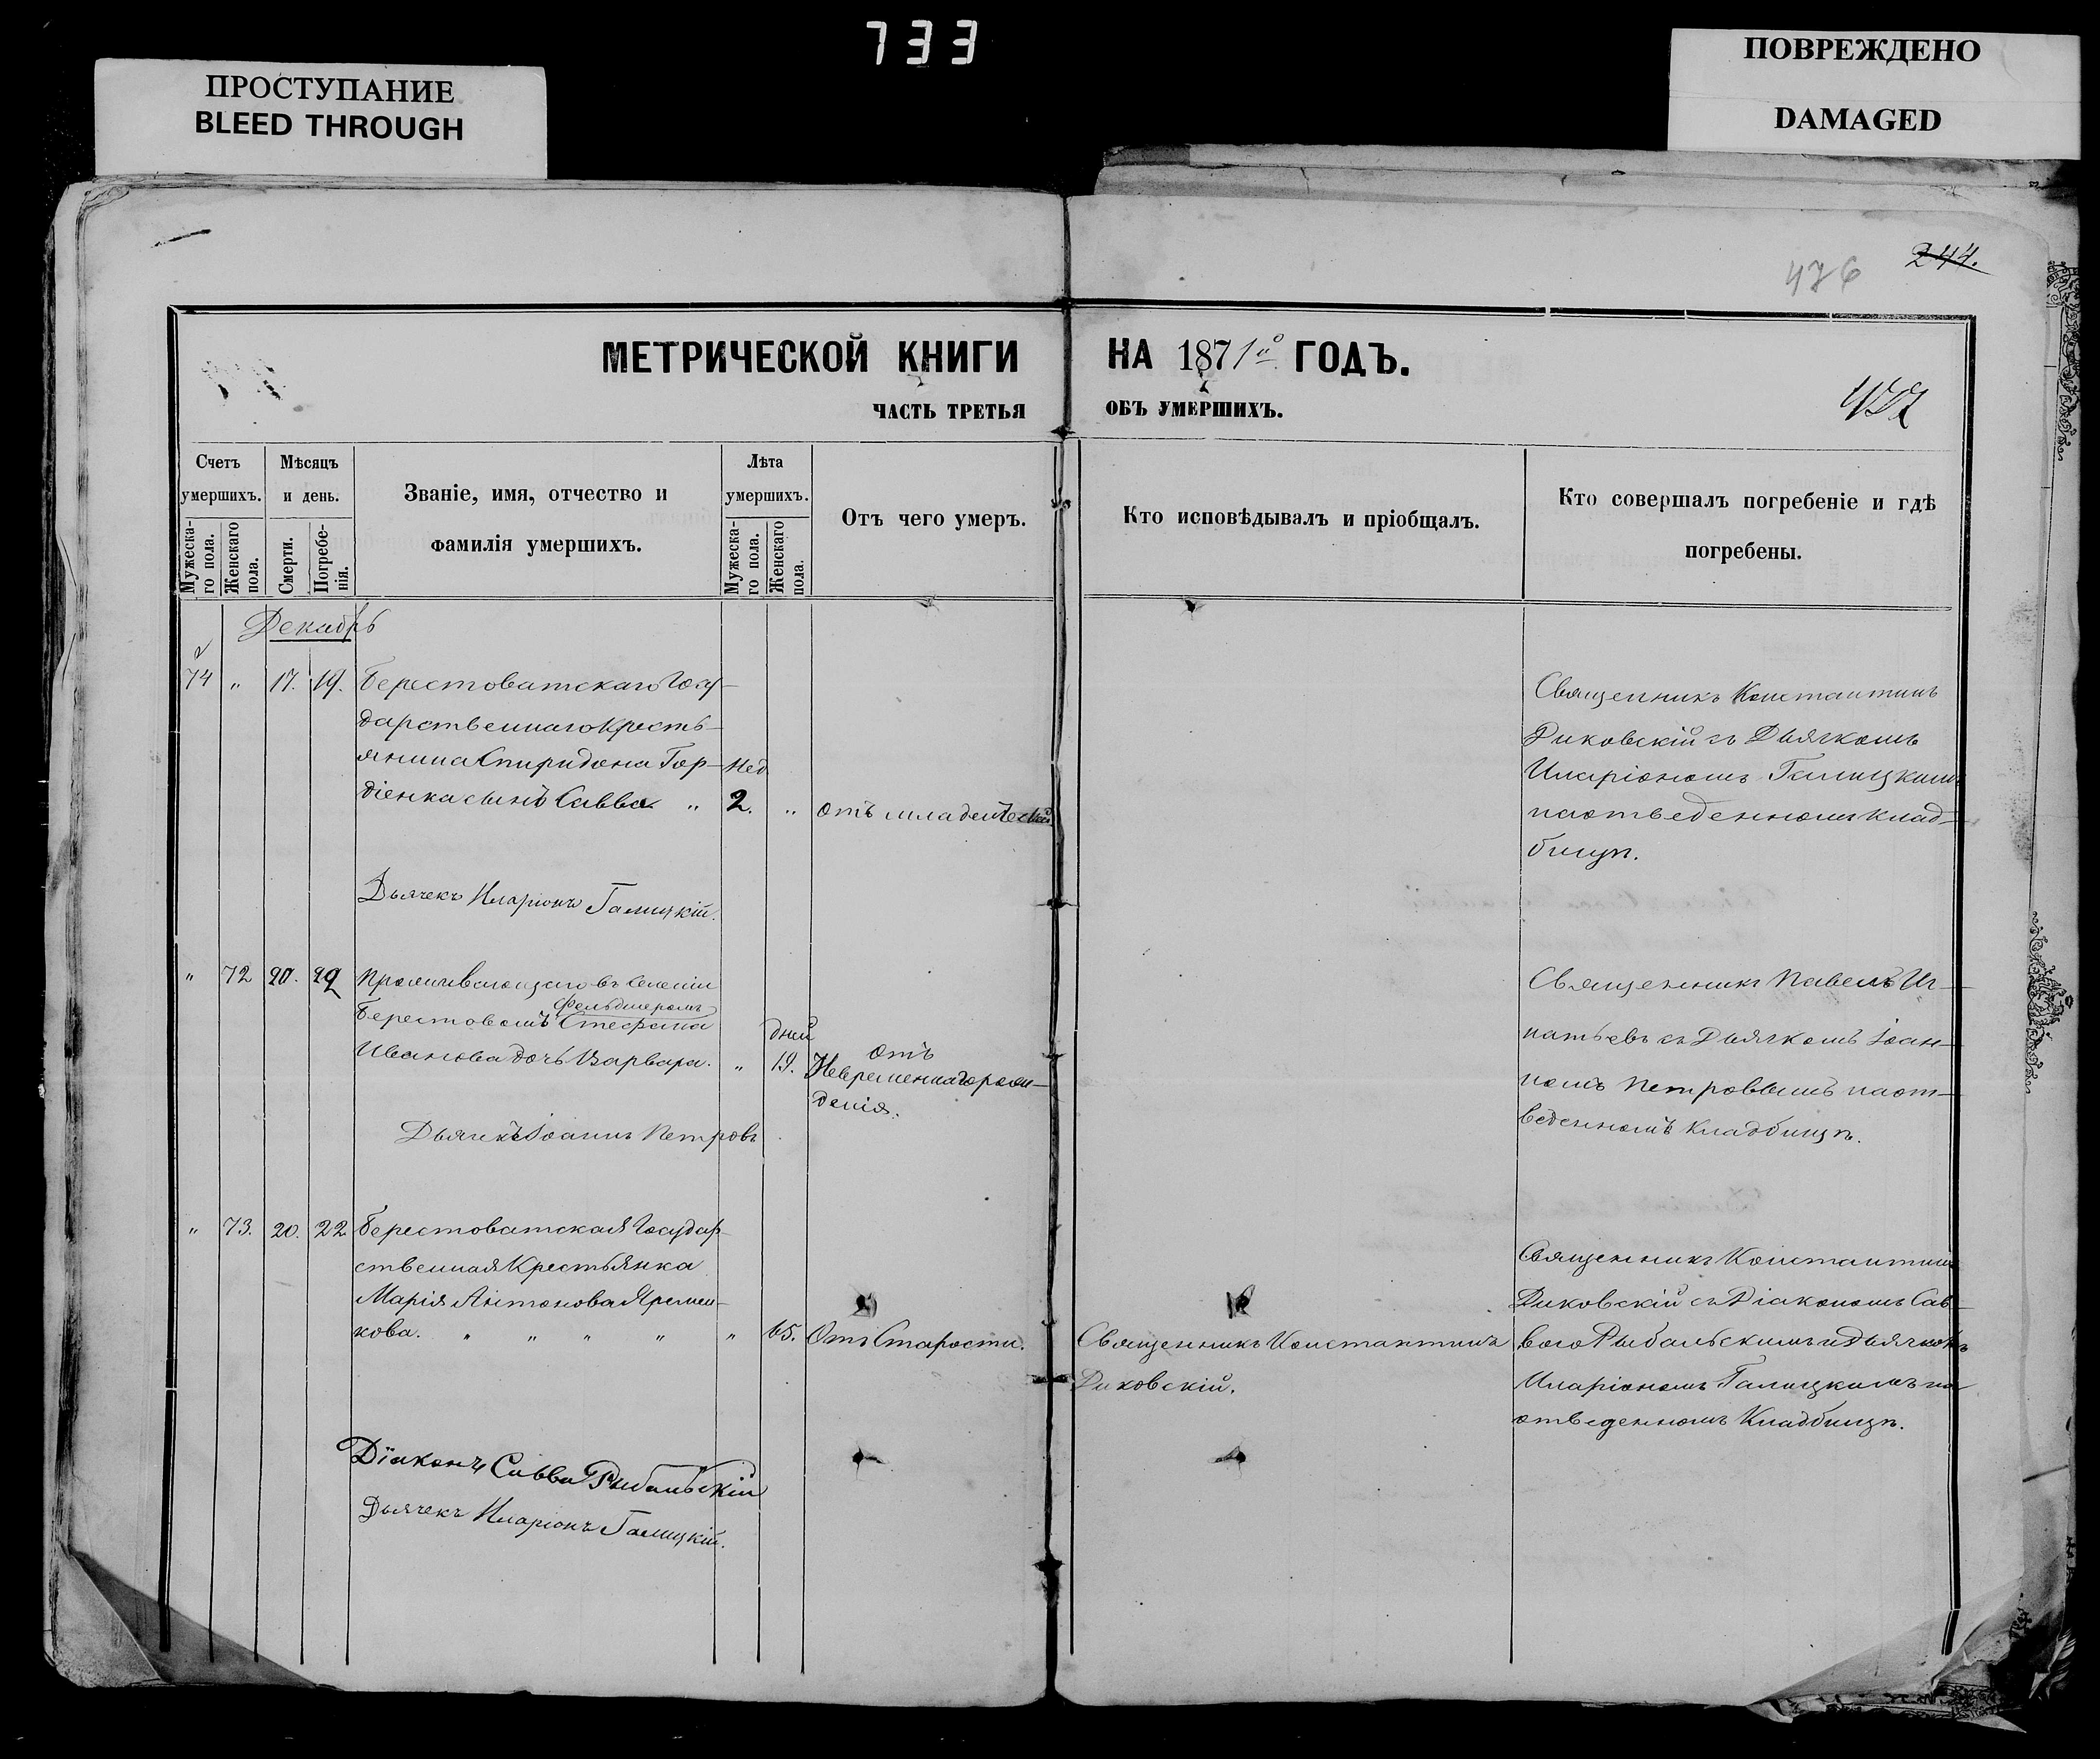 733
ПРОСТУПАНИЕ
BLEED THROUGH
ПОВРЕЖДЕНО
DAMAGED
244.
476
МЕТРИЧЕСКОЙ КНИГИ НА 1871й ГОДЪ.
ЧАСТЬ ТРЕТЬЯ ОБЪ УМЕРШИХЪ.
Счетъ умершихъ.
Мужеска-
го пола.
Женскаго
пола.
Мѣсяцъ
и день.
Смерти.
Погребе-
нія.
Званіе, имя, отчество и
фамилія умершихъ.
Лѣта
умершихъ.
Мужеска-
го пола.
Женскаго
пола.
Отъ чего умеръ.
Кто исповѣдывалъ и пріобщалъ.
Кто совершалъ погребеніе и гдѣ
погребены.
Декабрь
74 " 17. 19. Берестоватскаго Госу-
дарственнаго Кресть-
янина Спиридона Гор- Нед.
діенка сынъ Савва " 2. " Отъ младенческой
Священникъ Константинъ
Диковскій съ Дьячкомъ
Иларіономъ Галицкимъ
на отведенномъ клад-
бищѣ.
Дьячекъ Иларіонъ Галицкій.
" 72 20. 22 Проживающаго въ Селеніи
Фельдшеромъ
Берестовомъ Стефана
Иванова дочь Варвара. " дней 19. Отъ
Невременнаго рож-
денія.
Священникъ Павелъ Иг-
натьевъ съ Дьячкомъ Іоан-
номъ Петровымъ на от-
веденномъ кладбищѣ.
Дьячекъ Іоаннъ Петровъ
" 73. 20. 22 Берестоватская Государ-
ственная Крестьянка
Марія Антонова Яремен-
кова. " " " " " 65. Отъ Старости.
Священникъ Константинъ
Диковскій.
Священникъ Константинъ
Диковскій съ Діакономъ Сав-
вою Рыбальскимъ и Дьячкомъ
Иларіономъ Галицкимъ на
отведенномъ Кладбищѣ.
Діаконъ Савва Рыбальскій
Дьячекъ Иларіонъ Галицкій.